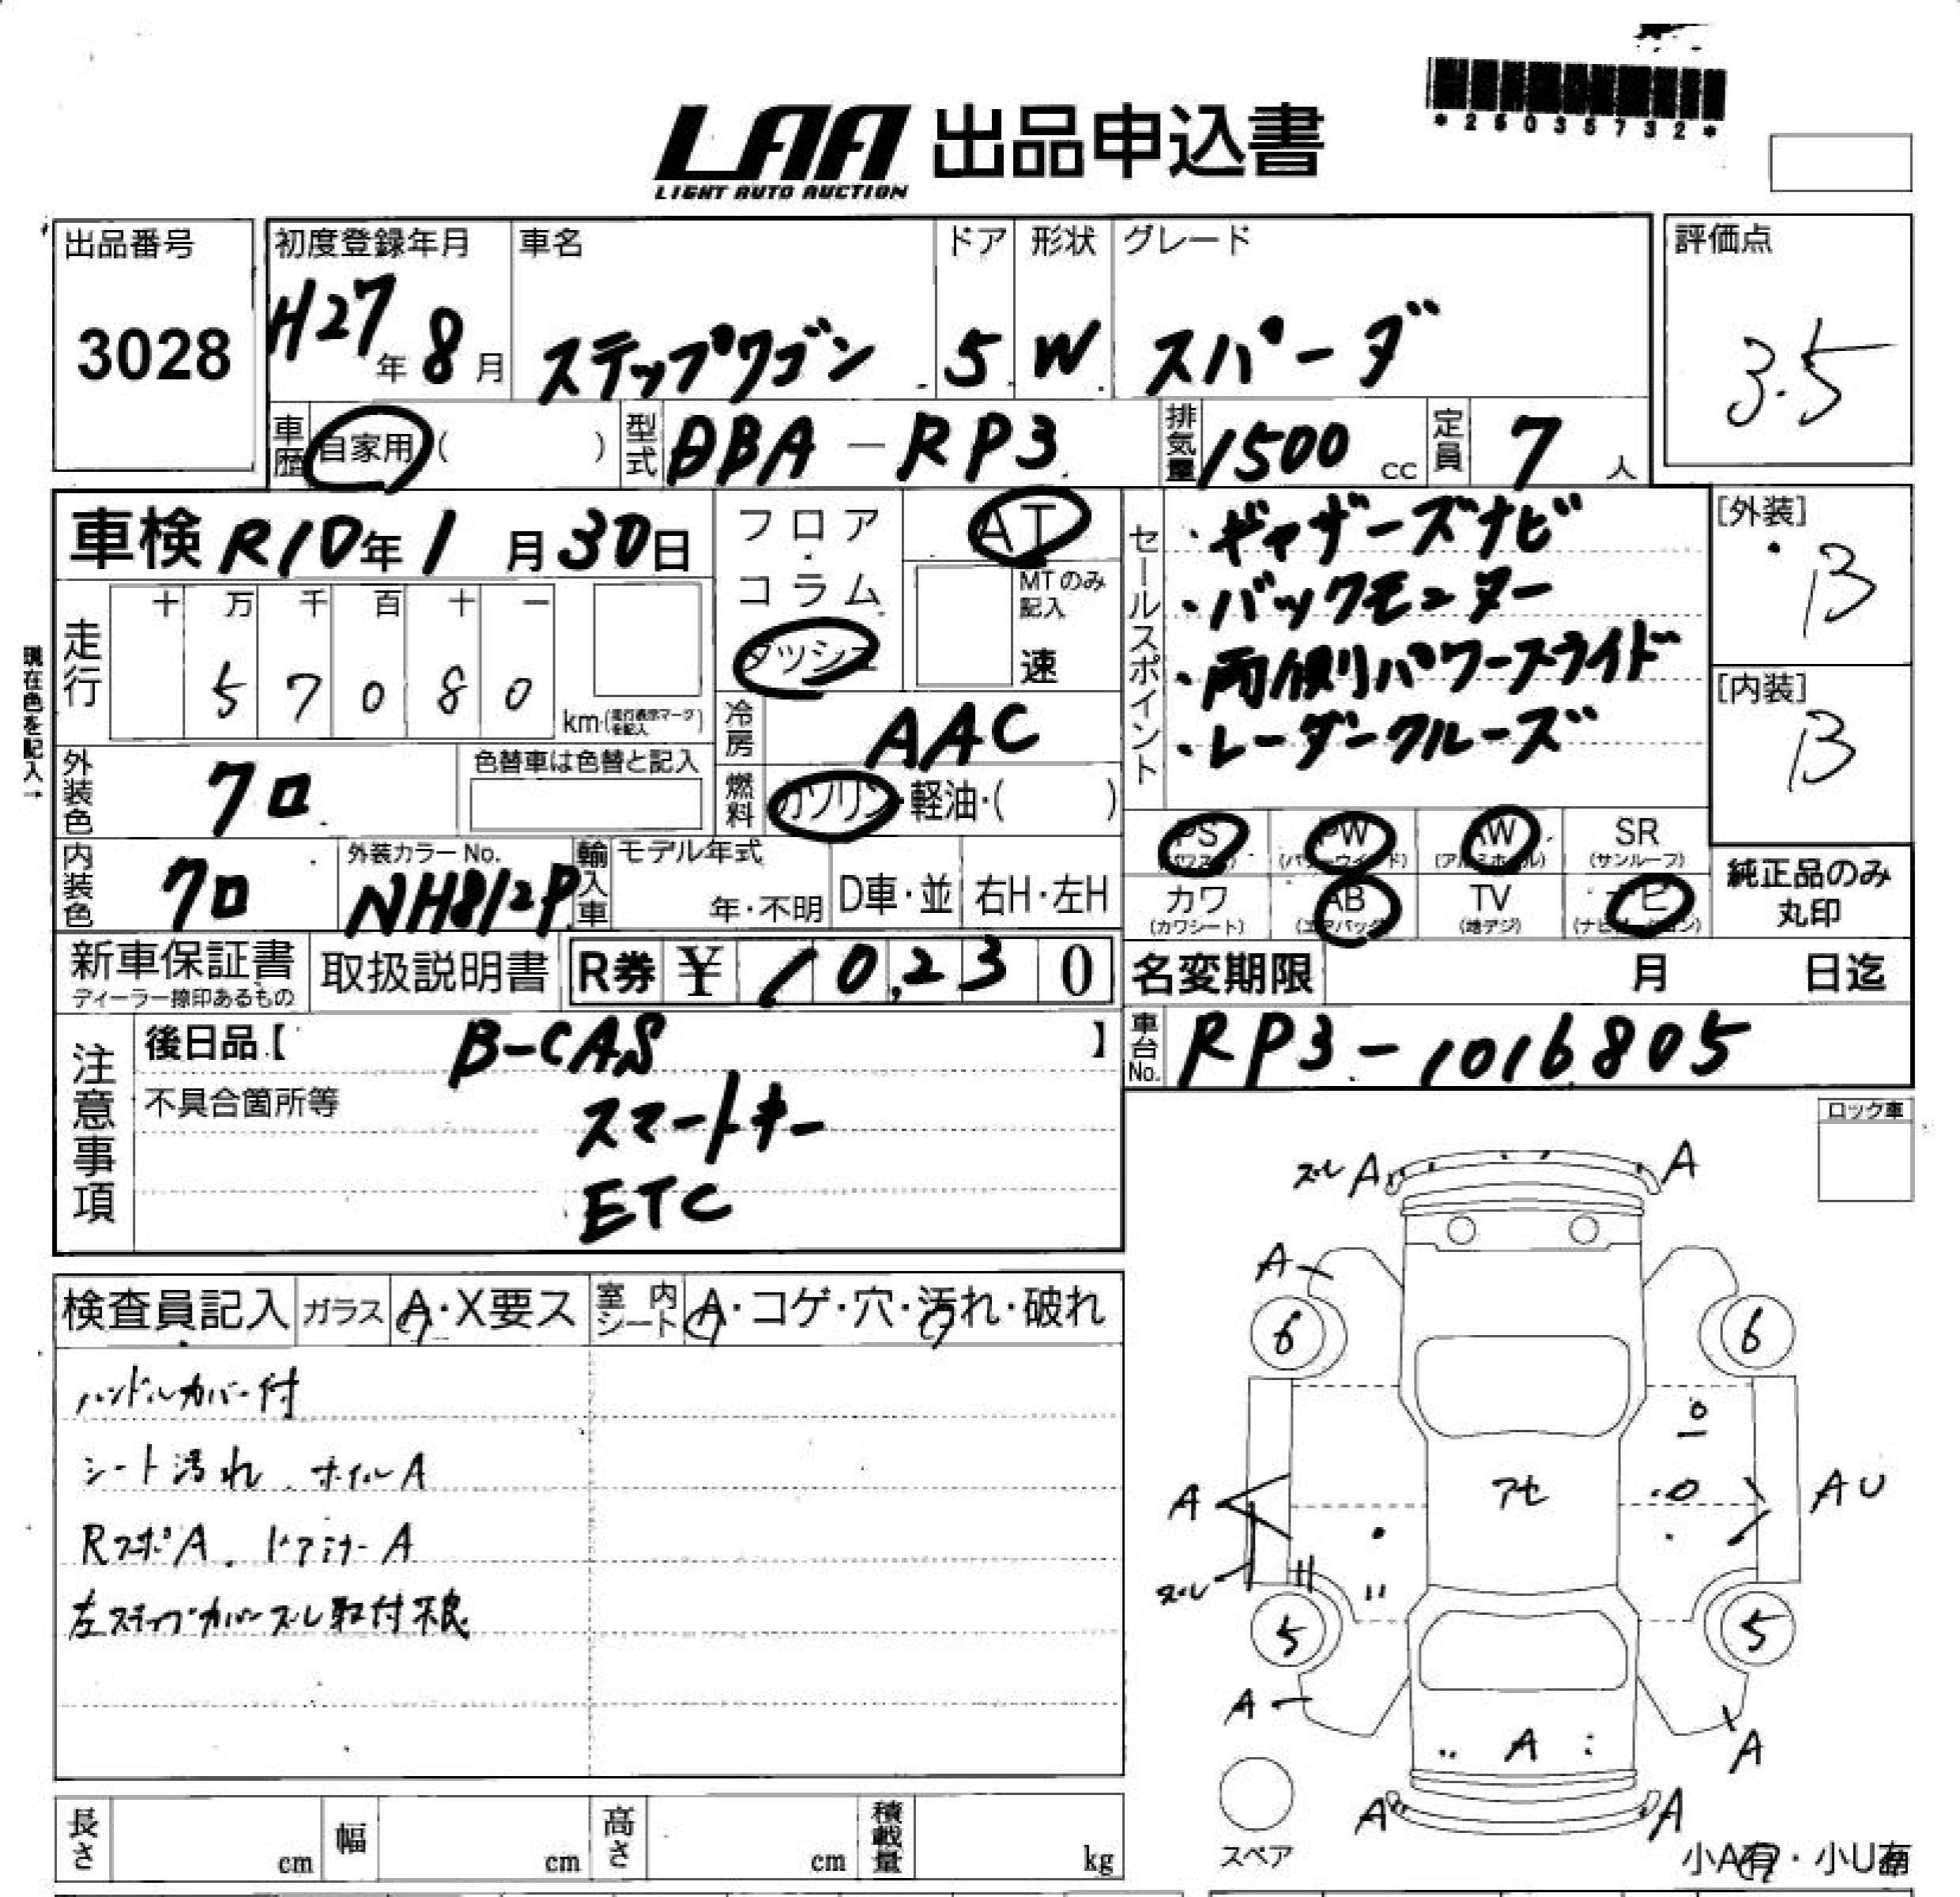 *26035732*
LAA 出品申込書
LIGHT AUTO AUCTION
出品番号
3028
初度登録年月
H27年8月
車名
ステップワゴン
ドア
5
形状
W
グレード
スパーダ
評価点
3.5
車歴
自家用( )
型式
DBA-RP3
排気量
1500cc
定員
7人
車検 R10年1月30日
フロア・コラム
ダッシュ
AT
MTのみ記入
速
セールスポイント
・ギャザーズナビ
・バックモニター
・両側パワースライド
・レーダークルーズ
[外装]
B
[内装]
B
現在色を記入→
走行
十 万 千 百 十 一
5 7 0 8 0
km・(走行表示マークを記入)
冷房
AAC
燃料
ガソリン・軽油・( )
外装色
クロ
色替車は色替と記入
内装色
クロ
外装カラーNo.
NH812P
輸入車
モデル年式
年・不明
D車・並
右H・左H
PS
PW
AW
(アルミホイール)
SR
(サンルーフ)
カワ
(カワシート)
AB
(エアバッグ)
TV
(地デジ)
ナビ
(ナビゲーション)
純正品のみ
丸印
新車保証書
ディーラー捺印あるもの
取扱説明書
R券 ¥10,230
名変期限 月 日迄
車台No.
RP3-1016805
注意事項
後日品【 B-CAS 】
不具合箇所等
スマートキー
ETC
ロック車
検査員記入
ガラス
A・X要ス
室内シート
A・コゲ・穴・汚れ・破れ
ハンドルカバー付
シート汚れ、ホイルA
RスポA、ドアミラーA
左ステップカバーズレ取付不良
ズレ A
A
A
6
6
A
アセ
AU
ズレ
5
5
A
A
A
A
A
スペア
小A有・小U有
長さ cm
幅 cm
高さ cm
積載量 kg